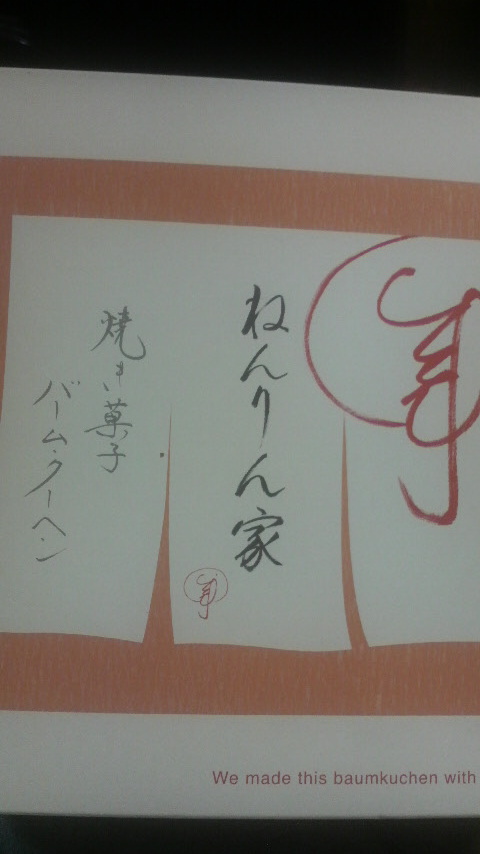 ねんりん家
焼き菓子
バーム・クーヘン
We made this baumkuchen with